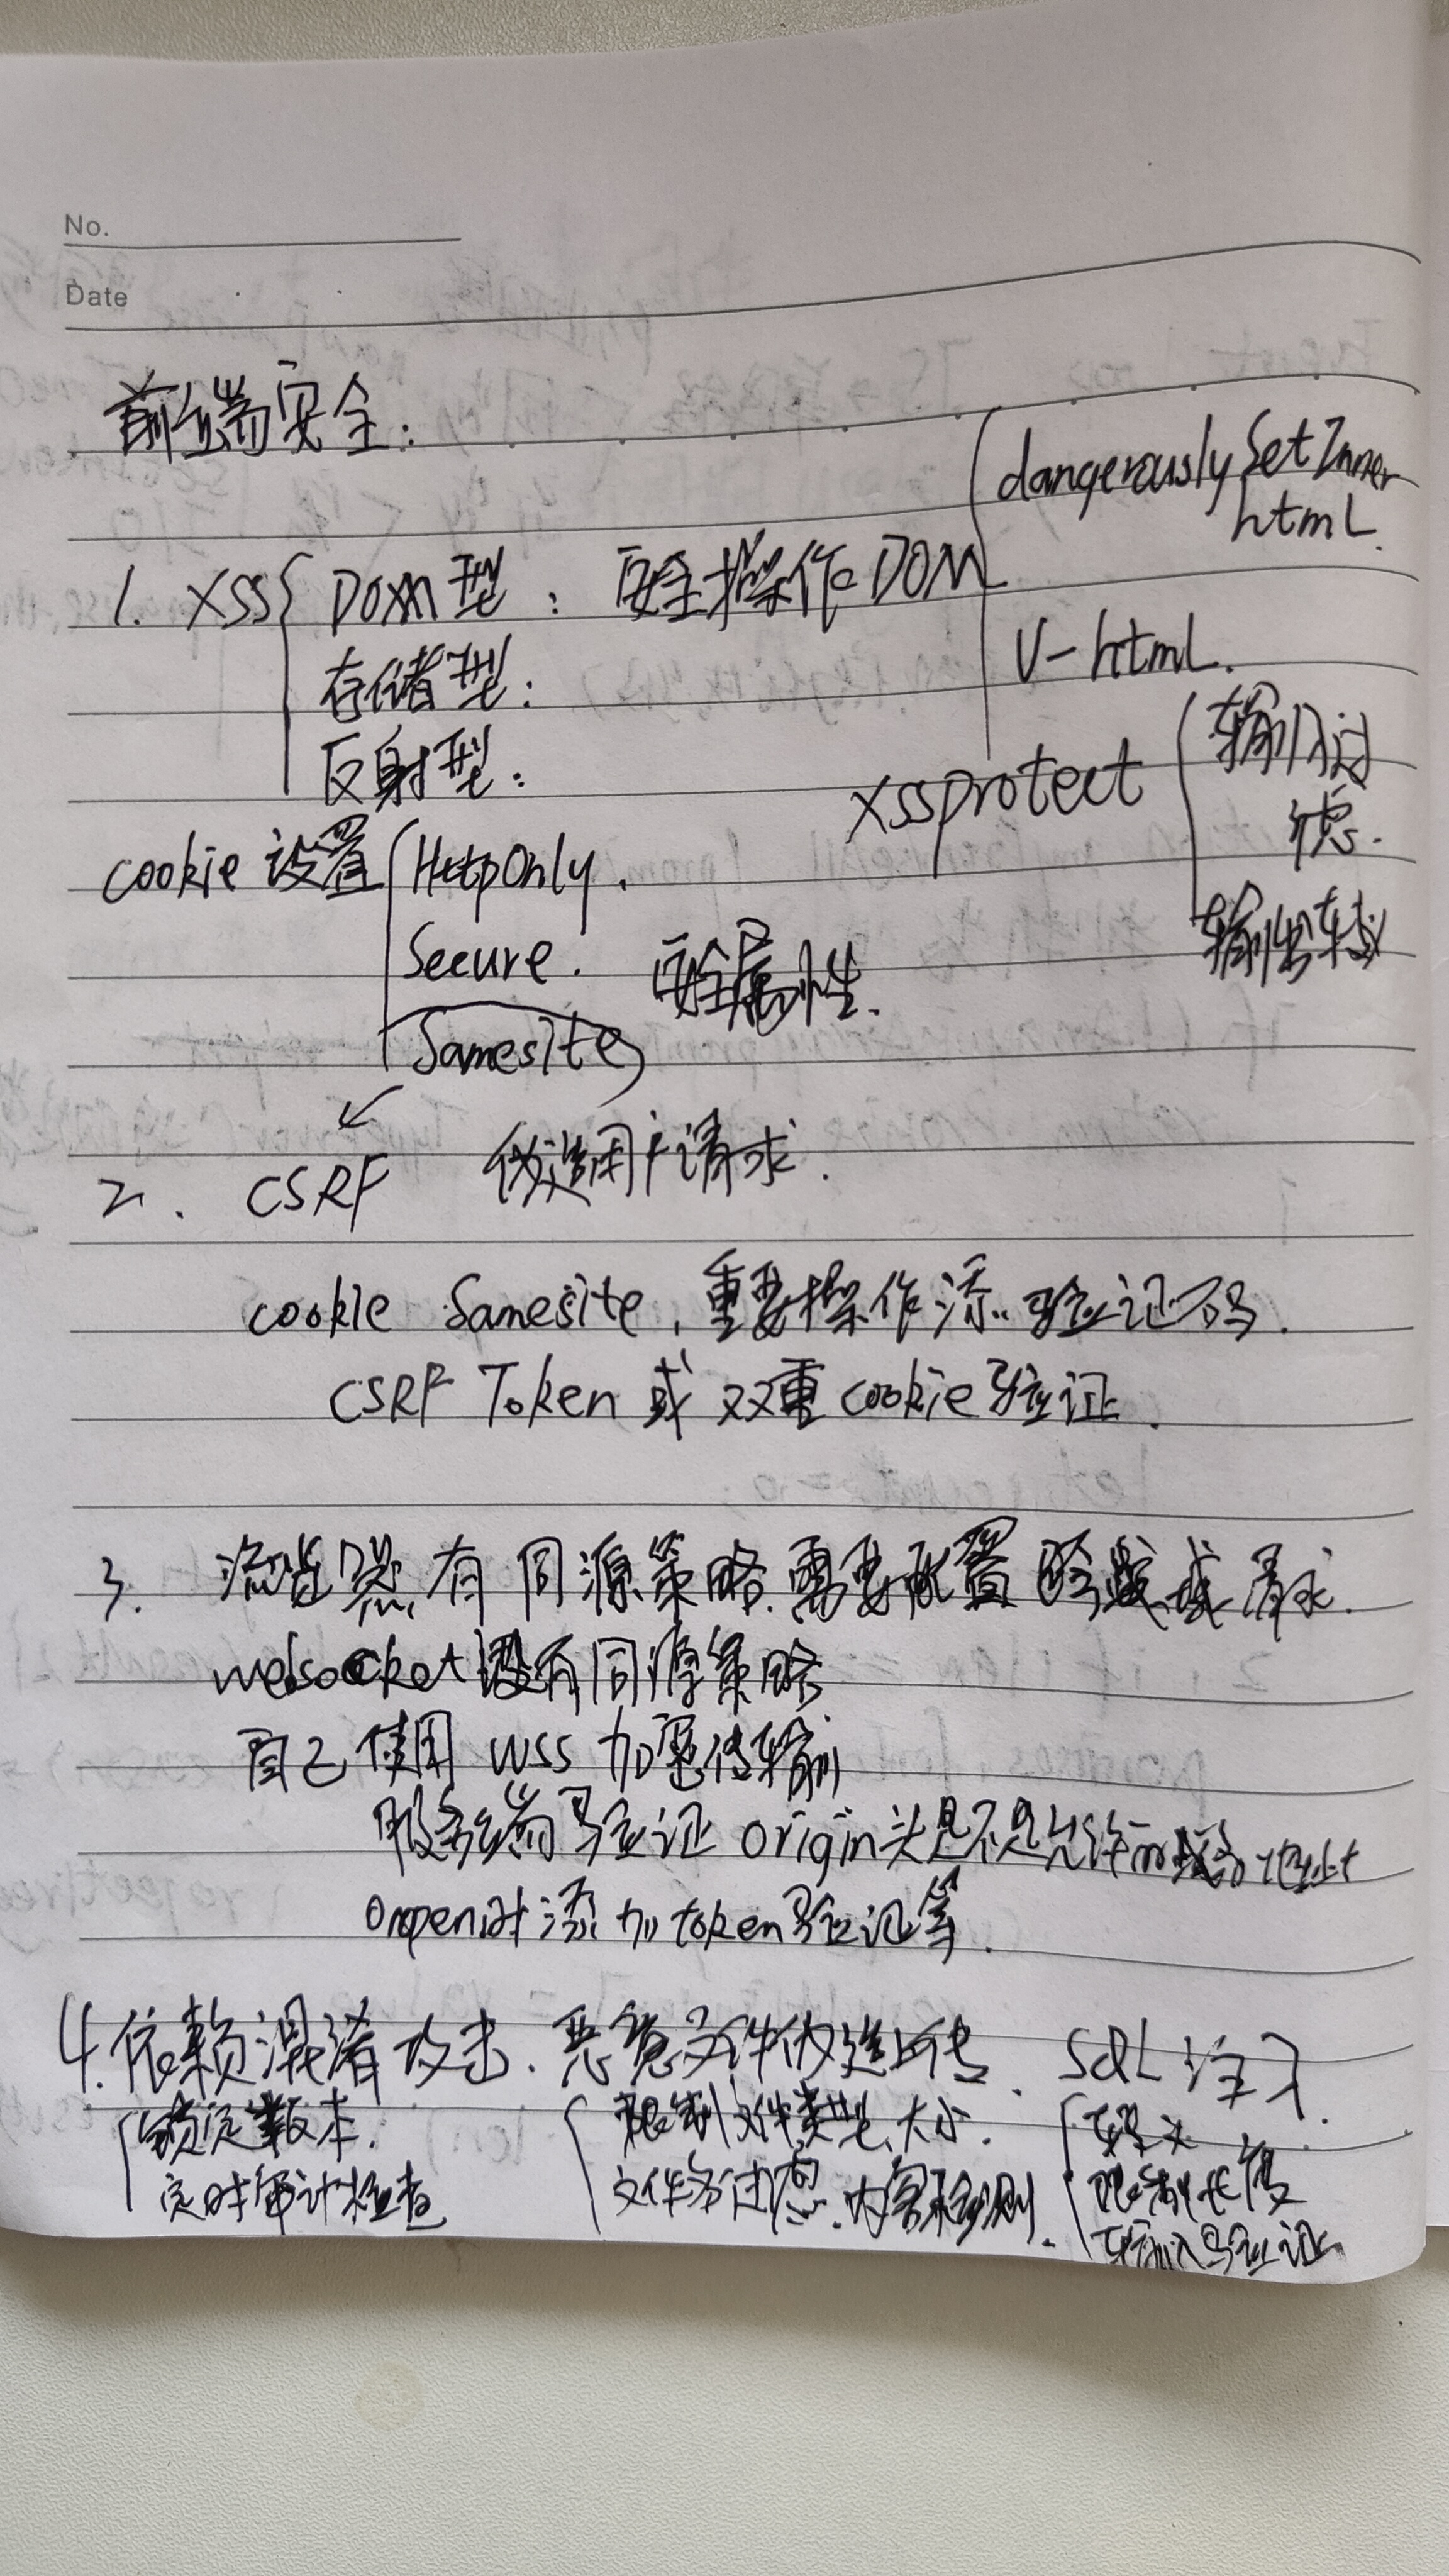 No.
Date
前端安全:
dangerouslySetInner
html.
1. XSS DOM型: 安全操作DOM
V-html.
存储型:
反射型:
xssprotect
输入过
滤.
输出转义
cookie 设置 HttpOnly.
Secure. 安全属性.
Samesite
2. CSRF 伪造用户请求.
cookie Samesite, 重要操作添 验证码.
CSRF Token 或 双重cookie验证.
3. 浏览器有同源策略.需要配置 跨域 请求.
websocket 没有同源策略
自己使用 wss 加密传输
服务端验证 origin头是不是允许的 地址
onopen时添加token验证等.
4. 依赖混淆攻击. 恶意文件伪造上传. SQL 注入.
锁定版本. 限制文件类型、大小. 转义
定时审计检查 文件名过滤. 内容 限制长度
输入验证